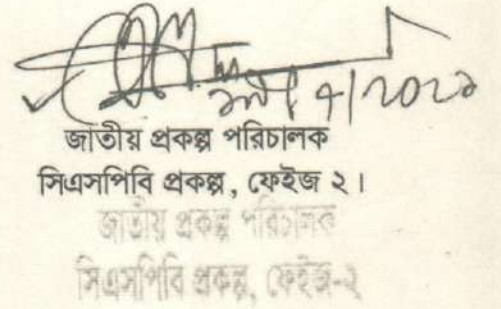 জাতীয় প্রকল্প পরিচালক
সিএসপিবি প্রকল্প, ফেইজ ২।
জাতীয় প্রকল্প পরিচালক
সিএসপিবি প্রকল্প, ফেইজ-২